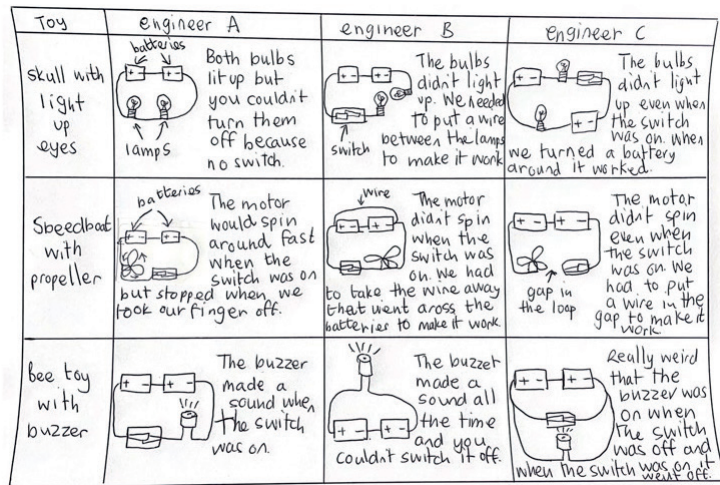 Toy
engineer A
engineer B
engineer C
skull with
light
up
eyes
batteries
+ - + -
lamps
Both bulbs
lit up but
you couldn't
turn them
off because
no switch.
+ - + -
switch
The bulbs
didn't light
up. We needed
to put a wire
between the lamps
to make it work
+ -
+ -
The bulbs
didn't light
up even when
the switch
was on. When
we turned a battery
around it worked.
Speedboat
with
propeller
batteries
+ - + -
The motor
would spin
around fast
when the
switch was on
but stopped when we
took our finger off.
wire
+ - + -
The motor
didn't spin
when the
switch was
on. We had
to take the wire away
that went aross the
batteries to make it work
+ - + -
gap in
the loop
The motor
didn't spin
even when
the switch
was on. We
had to put
a wire in the
gap to make it
work
Bee toy
with
buzzer
+ - + -
The buzzer
made a
sound when
the switch
was on.
+ - + -
The buzzer
made a
sound all
the time
and you
couldn't switch it off.
+ - + -
Really weird
that the
buzzer was
on when
the switch
was off and
when the switch was on it
went off.